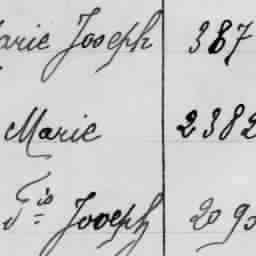 arie Joseph 387
Marie 2382
Fis Joseph 209